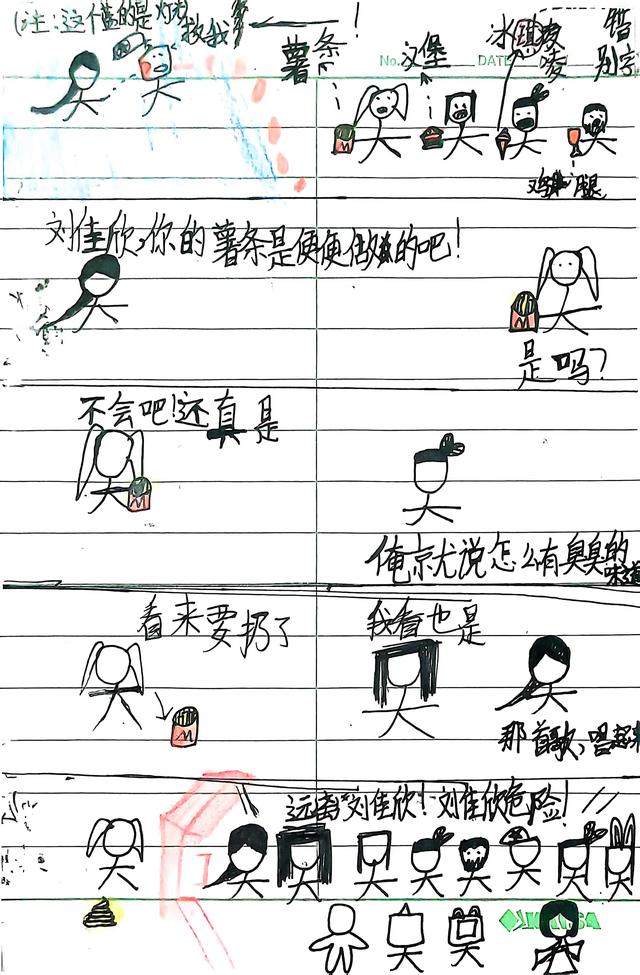 (注:这个蓝的是灯光
救我
!
薯条
汉堡
冰琪凌
凌
错
别字
No.
DATE
鸡腿
刘佳欣,你的薯条是便便做的吧!
是吗?
不会吧!还真是
俺京尤说怎么有臭臭的
味道
看来要扔了
我看也是
那首歌,唱起来
远离刘佳欣!刘佳欣危险!